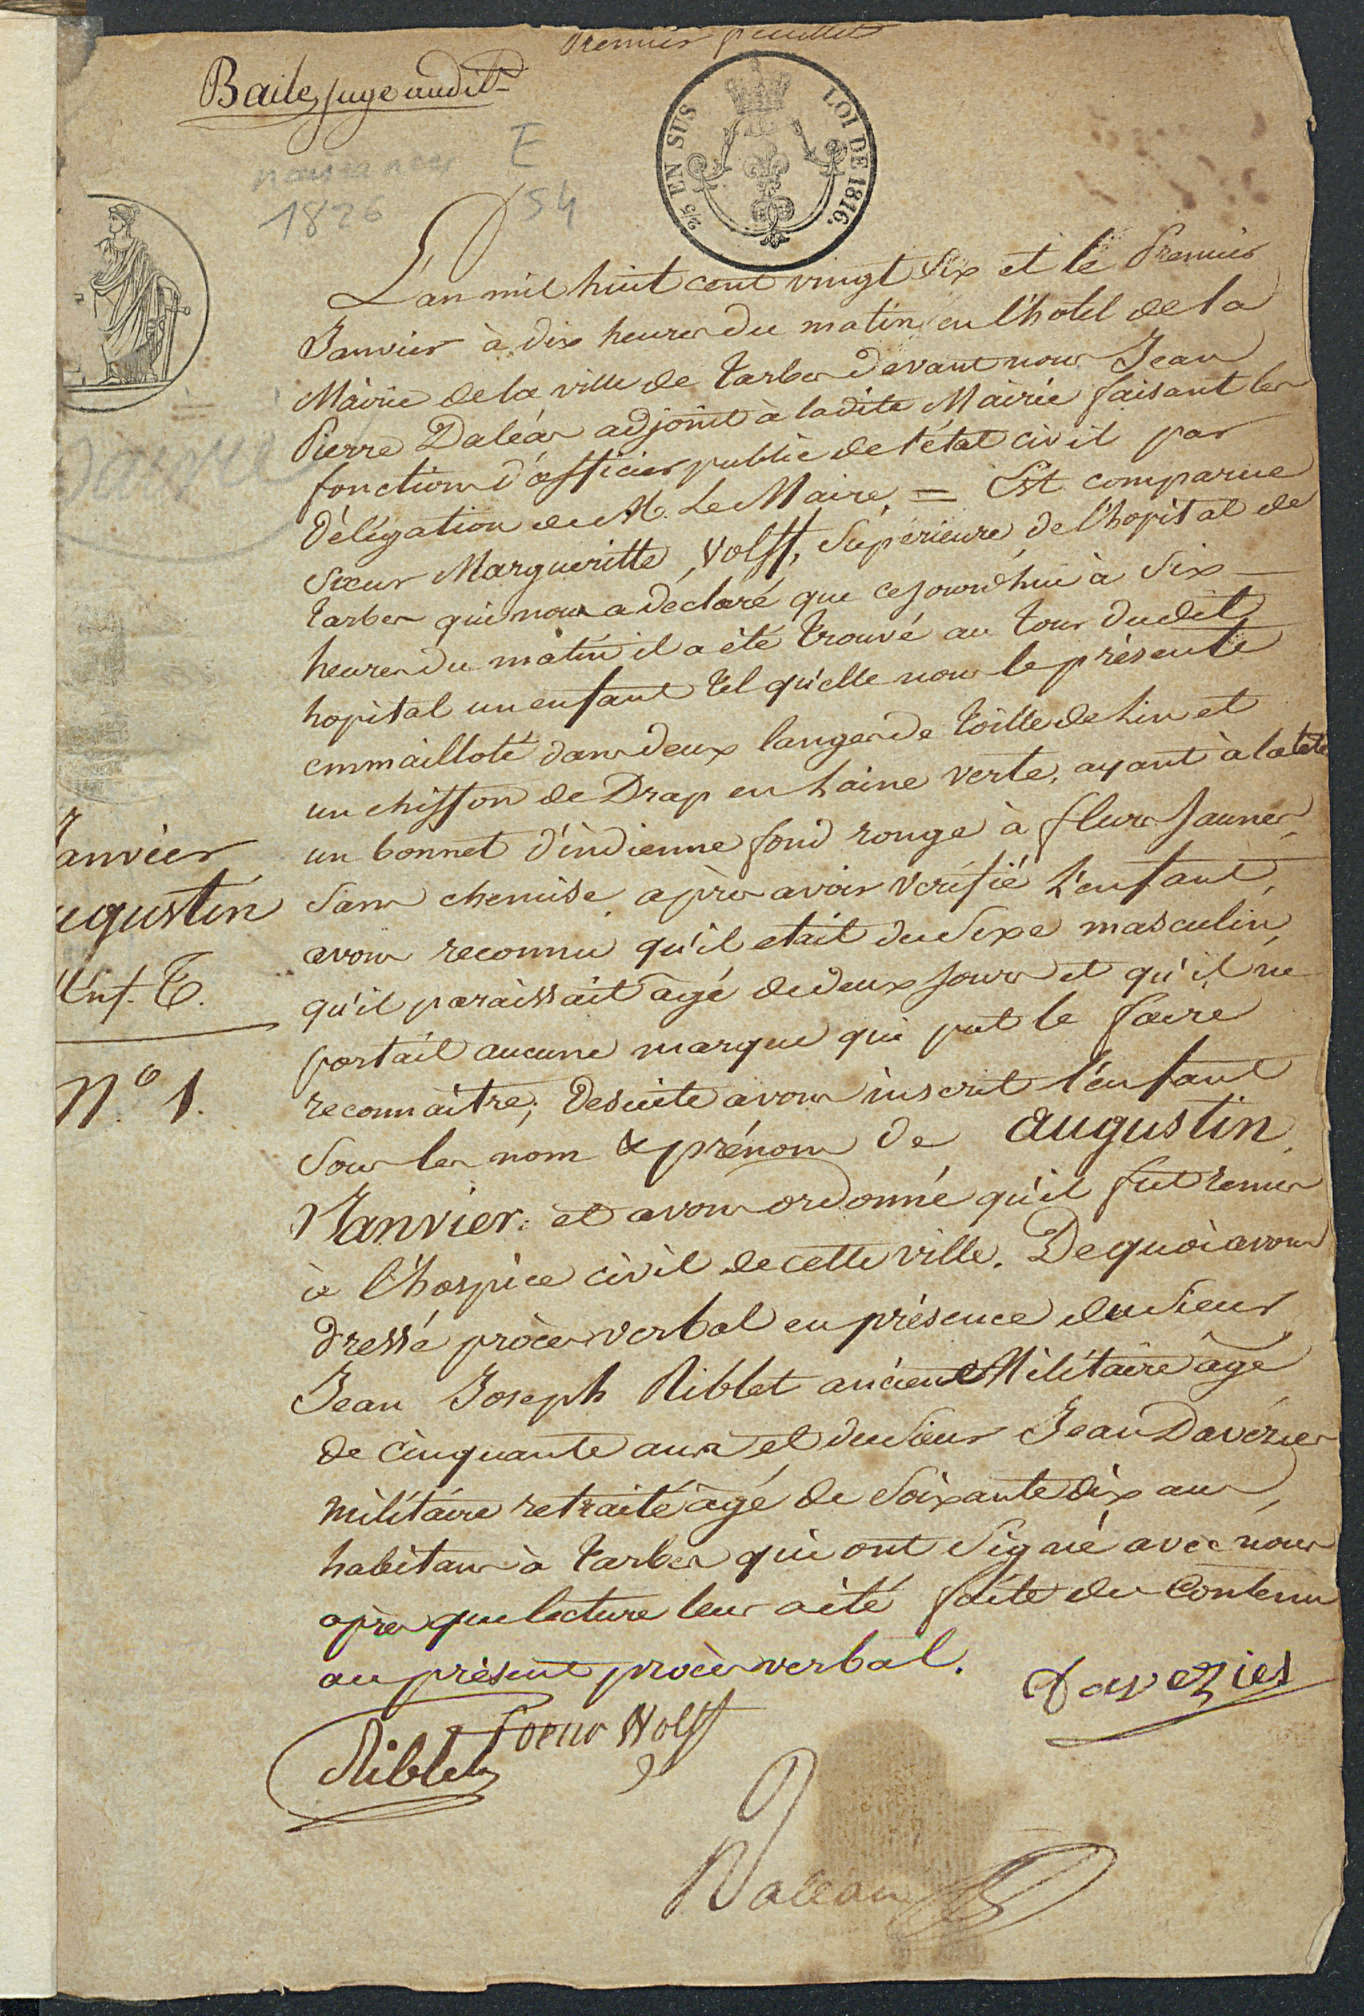 Premier feuillet
Baile, juge audit
2/5 EN SUS LOI DE 1816.
naissances E
1826 54
L'an mil huit cent vingt six et le Premier
Janvier à dix heures du matin en l'hotel de la
Mairie de la ville de tarbes devant nous Jean
Pierre Daléas adjoint à ladite Mairie faisant les
fonctions d'officier public de l'état civil par
délégation de M. Le Maire = Est comparue
Sœur Margueritte Volff, Supérieure de l'hopital de
tarbes qui nous a déclaré que cejourd'hui à six
heures du matin il a été trouvé au tour dudit
hopital un enfant tel qu'elle nous le présente
emmailloté dans deux langes de toille de lin et
un chiffon de Drap en Laine verte, ayant à la tête
un bonnet d'indienne fond rouge à fleurs jaunes
sans chemise. après avoir verifié L'enfant,
avons reconnu qu'il etait du sexe masculin,
qu'il paraissait âgé de deux jours et qu'il ne
portait aucune marque qui put le faire
reconnaitre; desuite avons inscrit l'enfant
sous les nom & prénom de augustin
Janvier: et avons ordonné qu'il fut remis
à l'hospice civil de cette ville. De quoi avons
dressé procès verbal en présence du sieur
Jean Joseph Riblet ancien Militaire âgé
de cinquante ans et du sieur Jean Davézies
militaire retraité âgé de soixante dix ans,
habitans à tarbes qui ont signé avec nous
après que lecture leur a été faite du contenu
au présent procès verbal.
Janvier
ugustin
Enf. T.
N° 1.
Davezies
Soeur Wolff
Riblet
Daleas